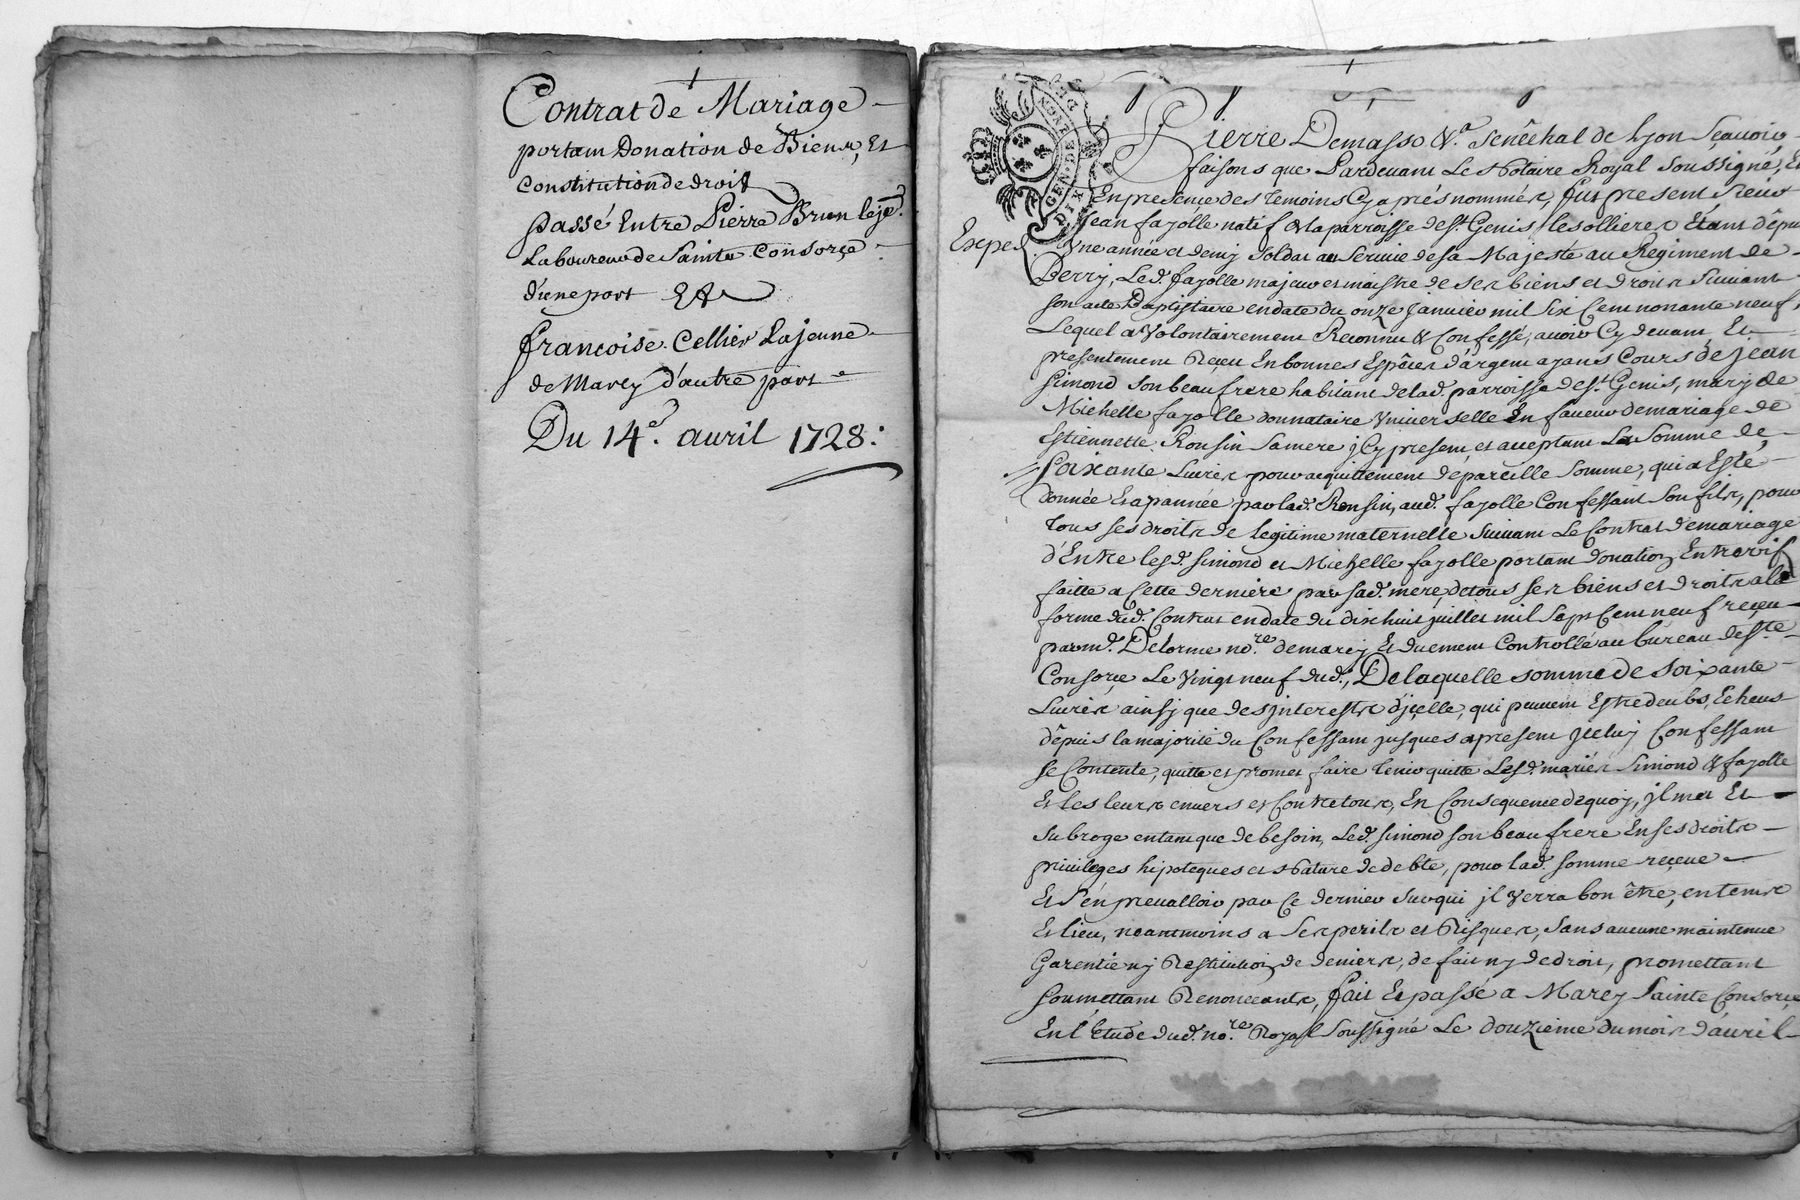 Contrat de Mariage
portant Donation de Biens, Et
Constitution de droit
passé Entre Pierre Brun le je.
Laboureur de Sainte Consorçe
d'une part Et
françoise Cellier La jeune
de Marcy d'autre part
Du 14e. avril 1728:
GEN. DE
DIX
Pierre Demasso &a. Senêchal de Lyon Sçauoir
faisons que Pardeuant Le Notaire Royal Soussigné, Et
En presence des temoins Cy aprés nommés, fut present Sieur
Jean fayolle natif de la parroisse de St. Genis les ollieres Etant dêpuis
Exped.
Une année et demy Soldat au Seruice de sa Majesté au Regiment de
Berry, Led. fayolle majeur et maistre de ses biens et droits Suiuant
son acte Baptistaire en date du onze Januier mil Six Cent nonante neuf,
Lequel a Volontairement Reconnu & Confessé, auoir Cy deuant Et
presentement Reçeu En bonnes Espêces d'argent ayants Cours de Jean
Simond Son beau frere habitant de lad. parroisse de St. Genis, mary de
Michelle fayolle donnataire Vniuerselle En faueur de mariage de
Estiennette Ronsin Sa mere jCy present et acceptant La Somme de
Soixante Liures pour acquittement de pareille Somme, qui a Esté
donnée Et apannée par lad. Ronsin, aud. fayolle Confessant Son fils, pour
Tous ses droits de legitime maternelle Suiuant Le Contrat de mariage
d'Entre lesd. Simond et Michelle fayolle portant donation Entreuifs
faitte a Cette derniere par sad. mere, de tous ses biens et droits a la
forme dud. Contrat en date du dix huit juillet mil Sept Cent neuf reçeu
par m. Delorme nore. de marcy Et duement Controllé au bureau de Ste.
Consorçe Le Vingt neuf dud., De laquelle somme de Soixante
Liures ainsy que des jnterests d'jcelle, qui peuuent Estre deubs, Echeus
dêpuis la majorité du Confessant jusques a present jceluy Confessant
se Contente, quitte et promet faire tenir quitte Lesd. mariés Simond & fayolle
Et les leurs enuers et Contre tous, En Consequence de quoy, jl met Et
Subroge entant que de besoin, Led. Simond Son beau frere En ses droits
priuileges hipoteques et Nature de debte, pour lad. somme reçeue
Et S'en preualloir par Ce dernier Sur qui jl Verra bon être, en tems
Et lieu, neantmoins a Ses perils et Risques, Sans aucune maintenue
Garentie ny Restitution de deniers, de fait ny de droit, promettant
Soumettant Renonceants, fait Et passé a Marcy Sainte Consorçe
En l'Etude dud. nore. Royal Soussigné Le douzieme du mois d'auril